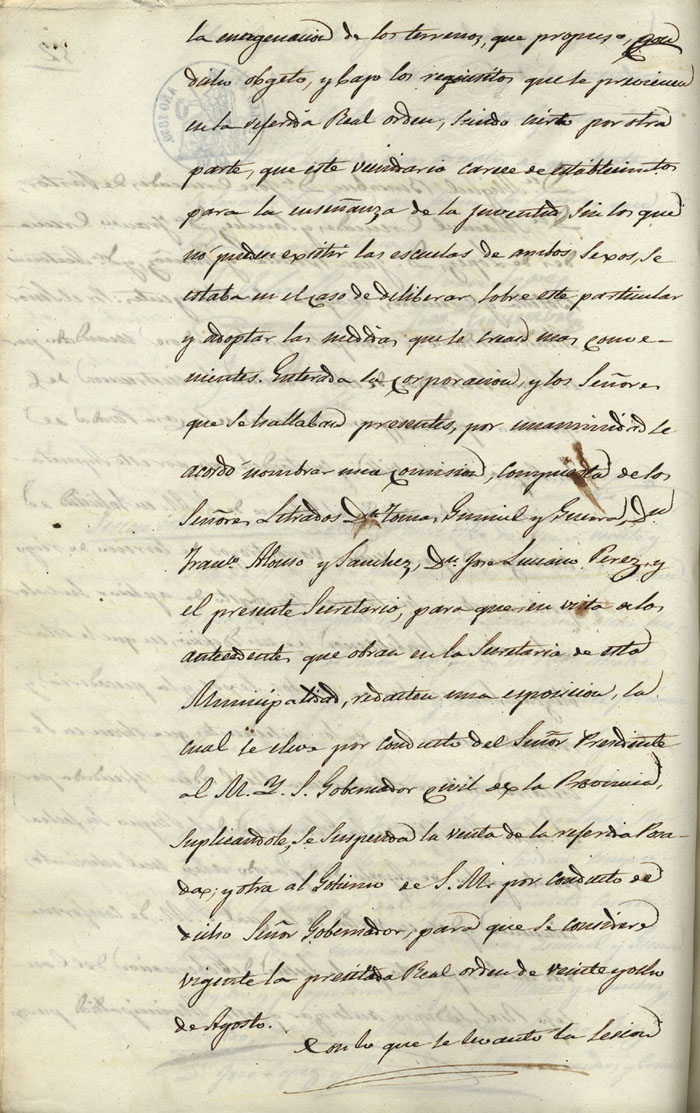 la enagenacion de los terrenos, que propuso, con
dicho obgeto, y bajo los requisitos que le previenen
en la referida Real orden, siendo cierto por otra
parte, que este vecindario carece de establecimtos
para la enseñanza de la juventud, sin los que
no pueden existir las escuelas de ambos sexos, se
estaba en el caso de deliberar sobre este particular
y adoptar las medidas que se crean mas conve-
nientes. Enterada la corporacion, y los Señores
que se hallaban presentes, por unanimidad se
acordó nombrar una comision, compuesta de los
Señores Letrados Dn Tomas Gumiel y Guerra, Dn
Franco Alonso y Sanchez, Dn Jose Luciano Perez, y
el presente Secretario, para que en vista de los
antecedentes que obran en la Secretaria de esta
Municipalidad, redacten una esposicion, la
cual se eleve por conducto del Señor Presidente
al M. Y. S. Gobernador civil de la Provincia,
suplicandole, se suspenda la venta de la referida Pora-
da; y otra al Gobierno de S. M. por conducto de
dicho Señor Gobernador, para que se considere
vigente la precitada Real orden de veinte y ocho
de Agosto.
Con lo que se levantó la sesion